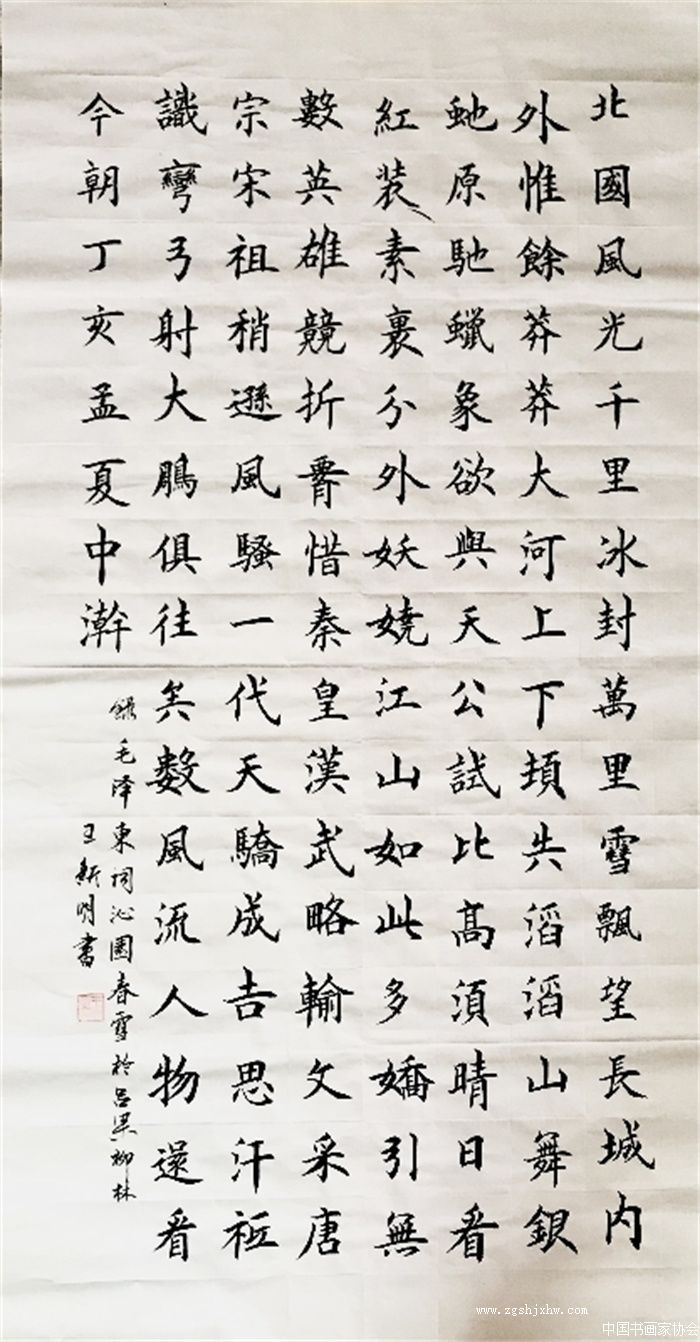 北國風光千里冰封萬里雪飄望長城内
外惟餘莽莽大河上下頓失滔滔山舞銀
虵原馳蠟象欲與天公試比高須晴日看
紅装素裹分外妖嬈江山如此多嬌引無
數英雄競折惜秦皇漢武略輸文采唐
宗宋祖稍遜風騷一代天驕成吉思汗祗
識彎弓射大鵰俱往矣數風流人物還看
今朝丁亥孟夏中澣
錄毛泽東词沁園春雪於吕梁柳林
王新明書
www.zgshjxhw.com
中国书画家协会